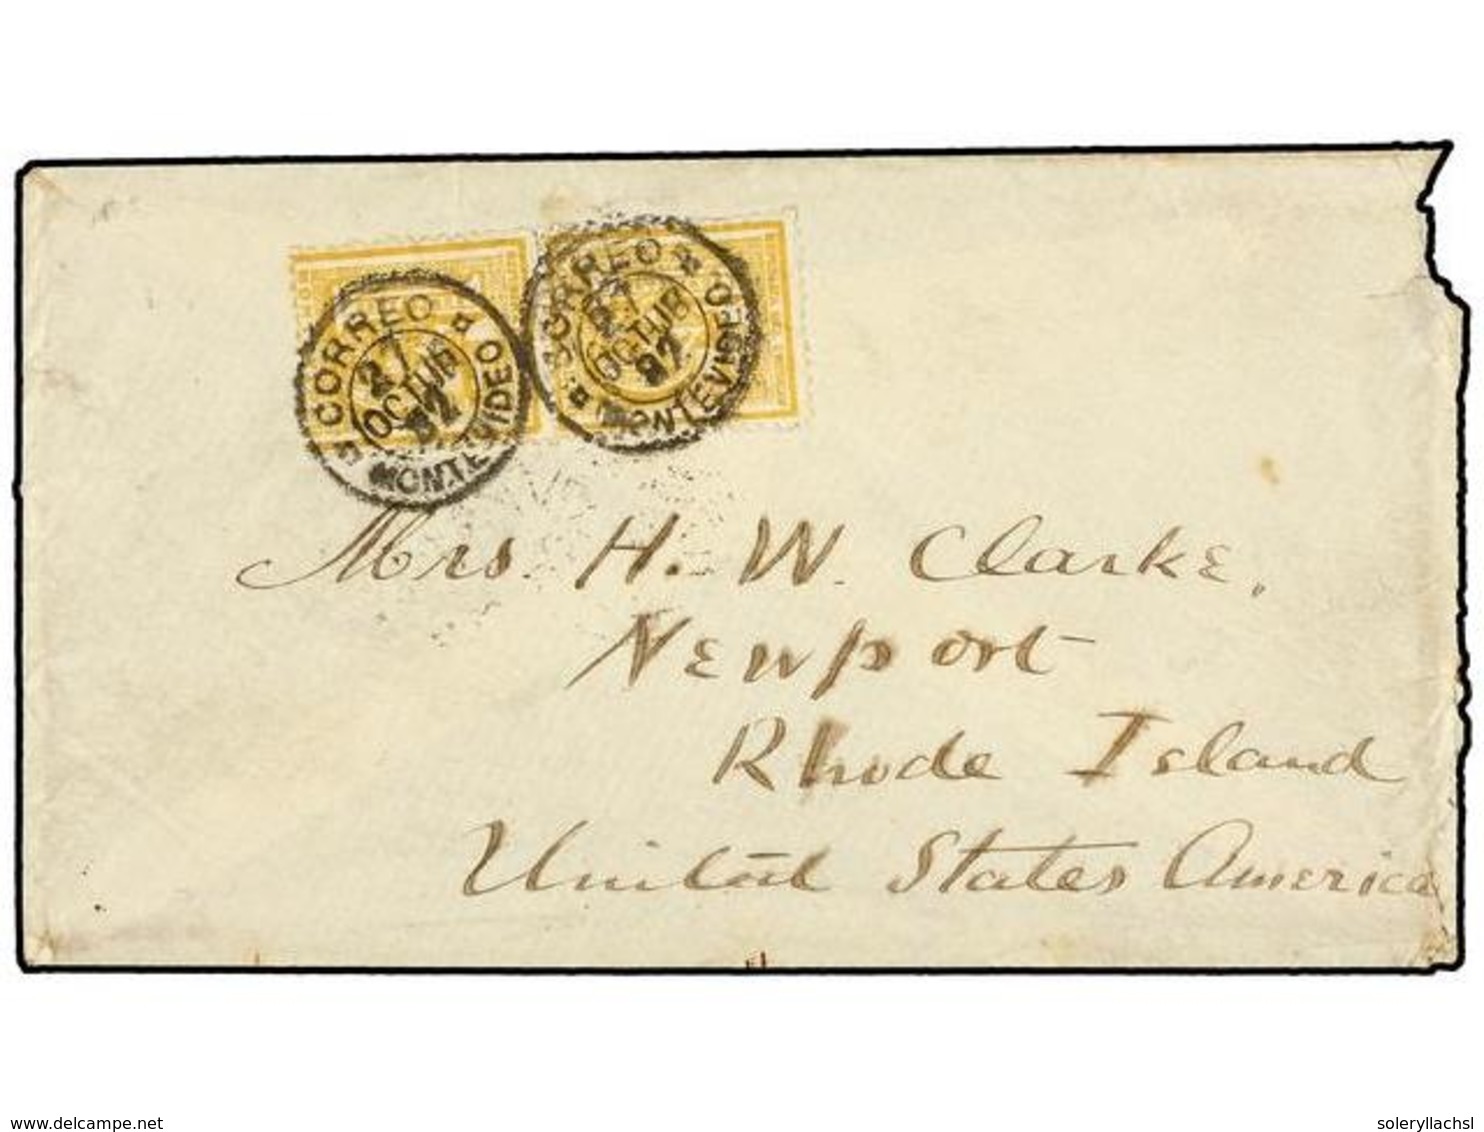 CORREO
27
OCTUB
82
MONTEVIDEO
CORREO
27
OCTUB
82
MONTEVIDEO
Mrs. H. W. Clarke,
Newport
Rhode Island
United States America
delcampe.net
soleryllachsl